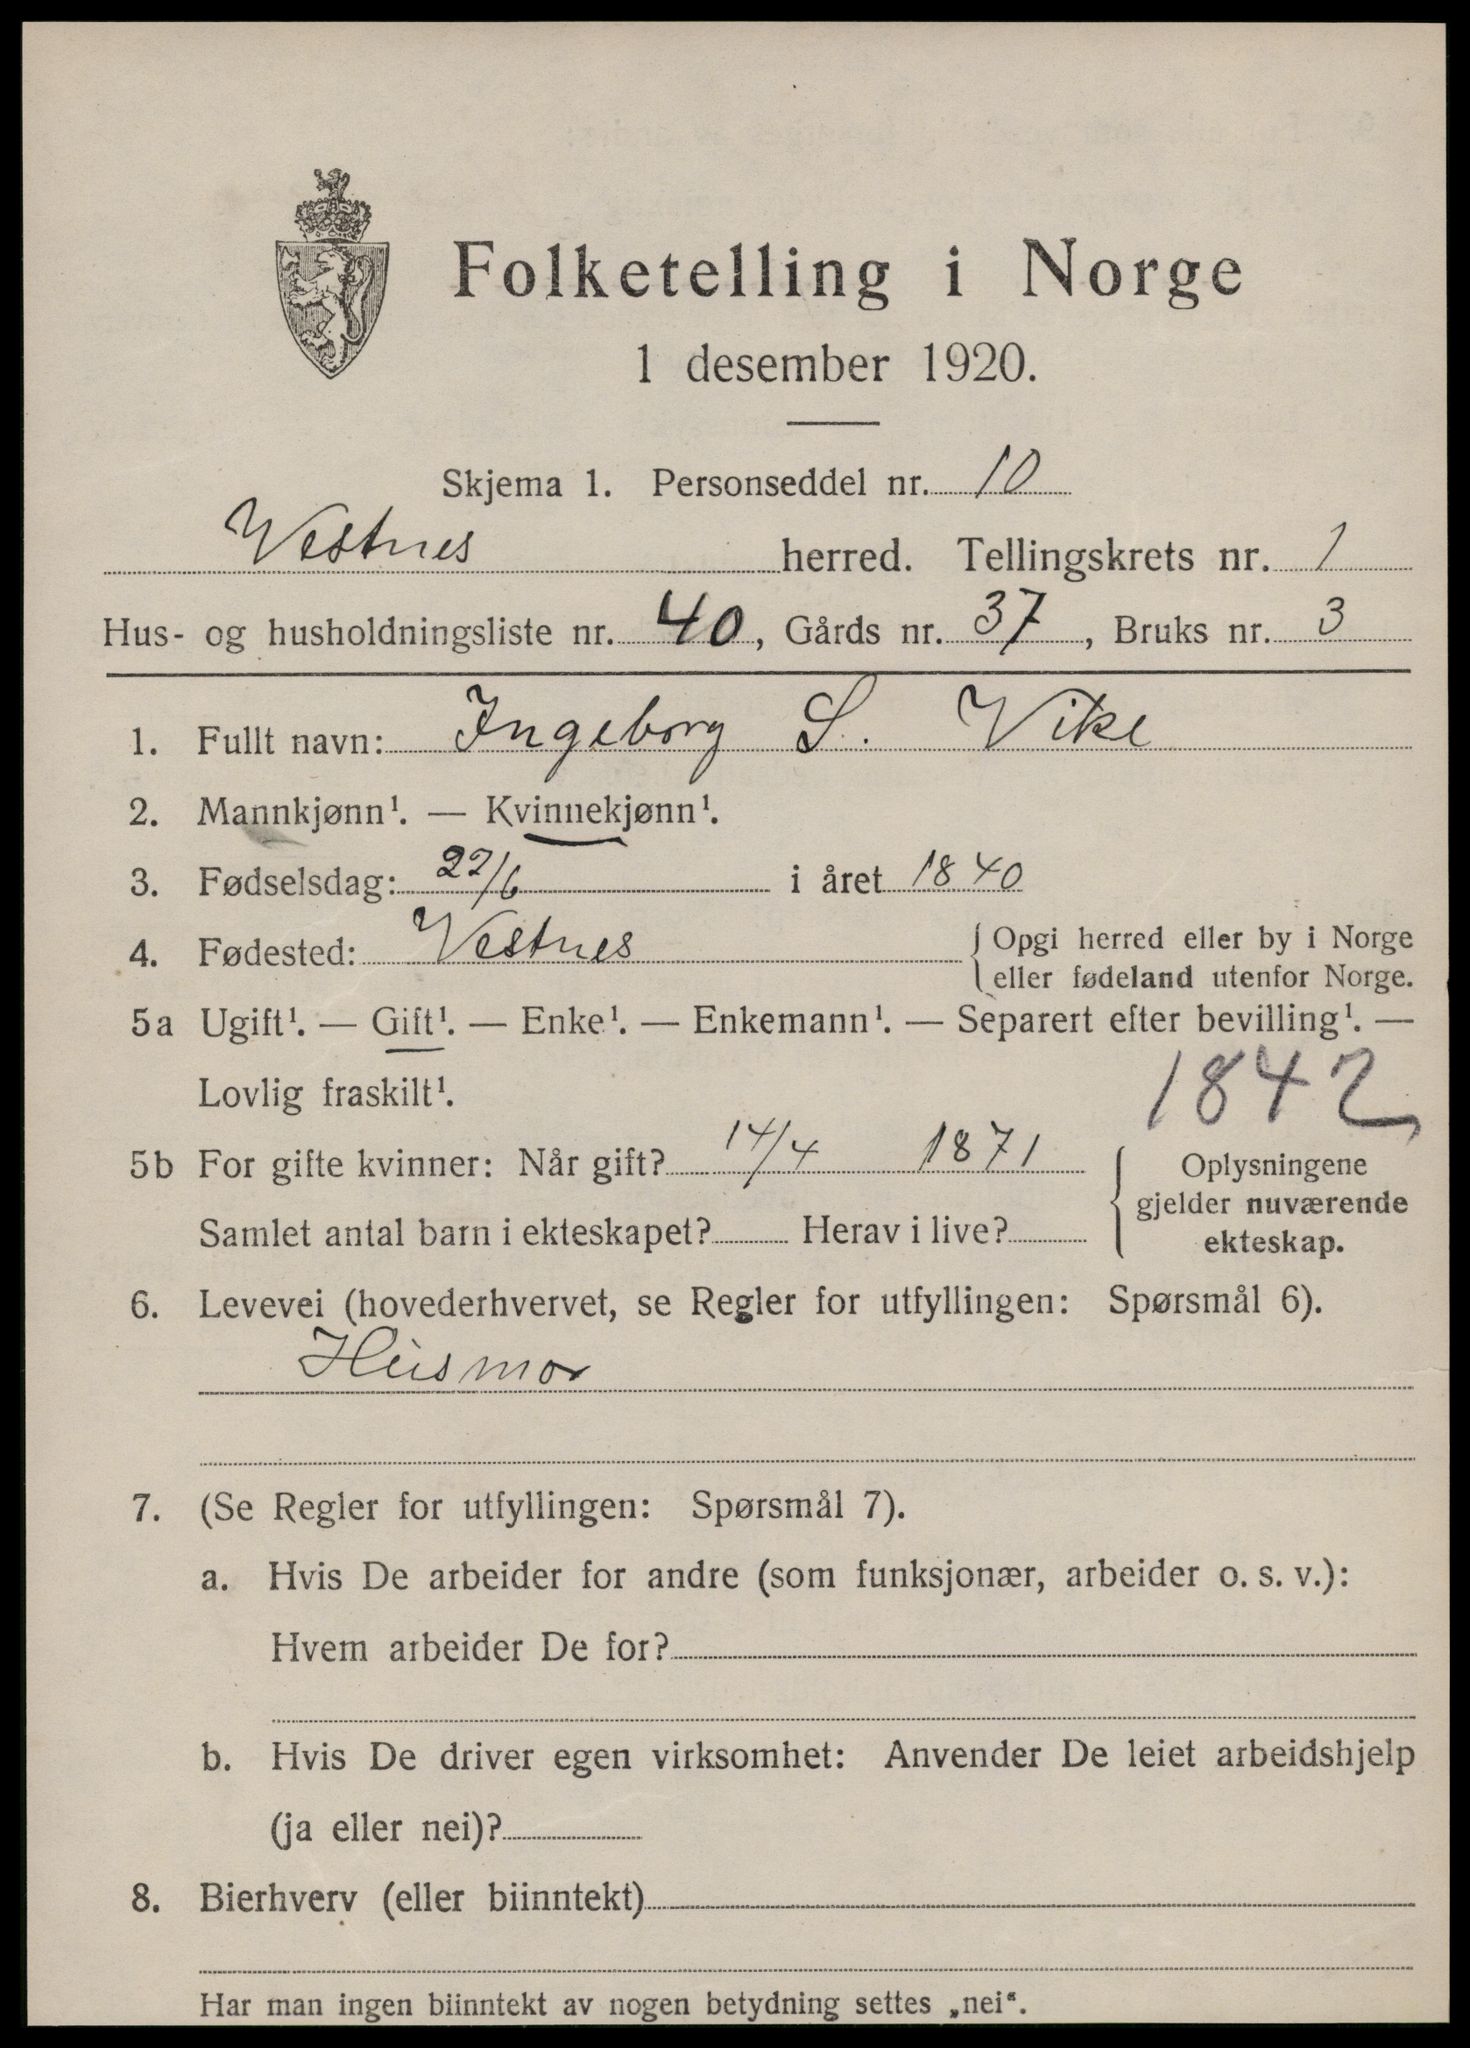 Folketelling i Norge
1 desember 1920.
Skjema 1. Personseddel nr. 10
Vestnes herred. Tellingskrets nr. 1
Hus- og husholdningsliste nr. 40, Gårds nr. 37, Bruks nr. 3
1. Fullt navn: Ingeborg S. Vike
2. Mannkjønn¹. — Kvinnekjønn¹.
3. Fødselsdag: 22/6 i året 1840
4. Fødested: Vestnes { Opgi herred eller by i Norge
eller fødeland utenfor Norge.
5a Ugift¹. — Gift¹. — Enke¹. — Enkemann¹. — Separert efter bevilling¹. —
Lovlig fraskilt¹.
1842
5b For gifte kvinner: Når gift? 14/4 1871
Samlet antal barn i ekteskapet? Herav i live?
{ Oplysningene
gjelder nuværende
ekteskap.
6. Levevei (hovederhvervet, se Regler for utfyllingen: Spørsmål 6).
Husmor
7. (Se Regler for utfyllingen: Spørsmål 7).
a. Hvis De arbeider for andre (som funksjonær, arbeider o. s. v.):
Hvem arbeider De for?
b. Hvis De driver egen virksomhet: Anvender De leiet arbeidshjelp
(ja eller nei)?
8. Bierhverv (eller biinntekt)
Har man ingen biinntekt av nogen betydning settes „nei“.